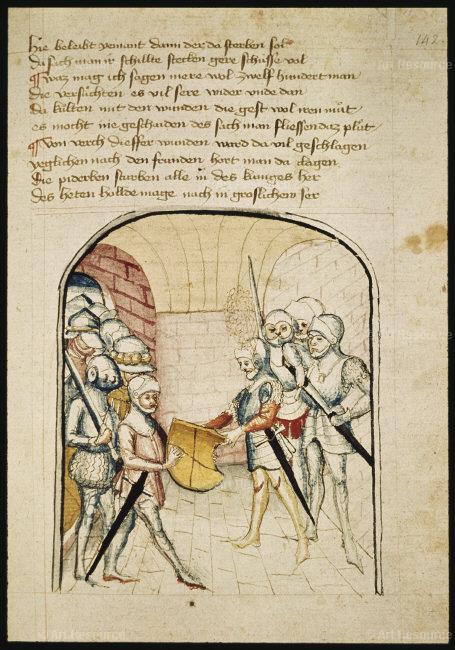 142
Hie beleibt yemant dann der da sterben sol
da sach man ir schilte stecken gere schüsse vol
¶ Waz mag ich sagen mere wol zwelf hundert man
die versůchten es vil sere wider vnde dan
da kůlten mit den wunden die gest wol iren můt
es mocht nie gescheiden des sach man fliessen daz plůt
¶ Von verch dieffer wunden ward da vil geschlagen
yeglichen nach den frunden hort man da clagen
Die piderben sturben alle in des kuniges her
des heten holde mage nach in groslichew ser
Art Resource
Art Resource